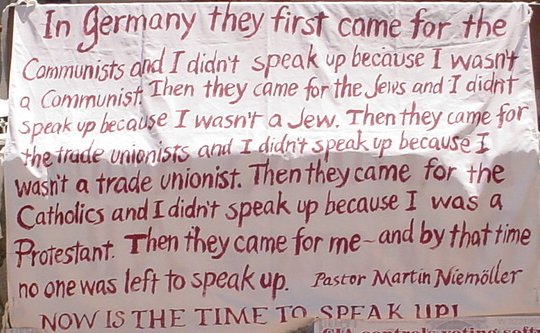 In Germany they first came for the
Communists and I didn't speak up because I wasn't
a Communist. Then they came for the Jews and I didn't
speak up because I wasn't a Jew. Then they came for
the trade unionists and I didn't speak up because I
wasn't a trade unionist. Then they came for the
Catholics and I didn't speak up because I was a
Protestant. Then they came for me - and by that time
no one was left to speak up. Pastor Martin Niemöller
NOW IS THE TIME TO SPEAK UP!
CIA controls voting